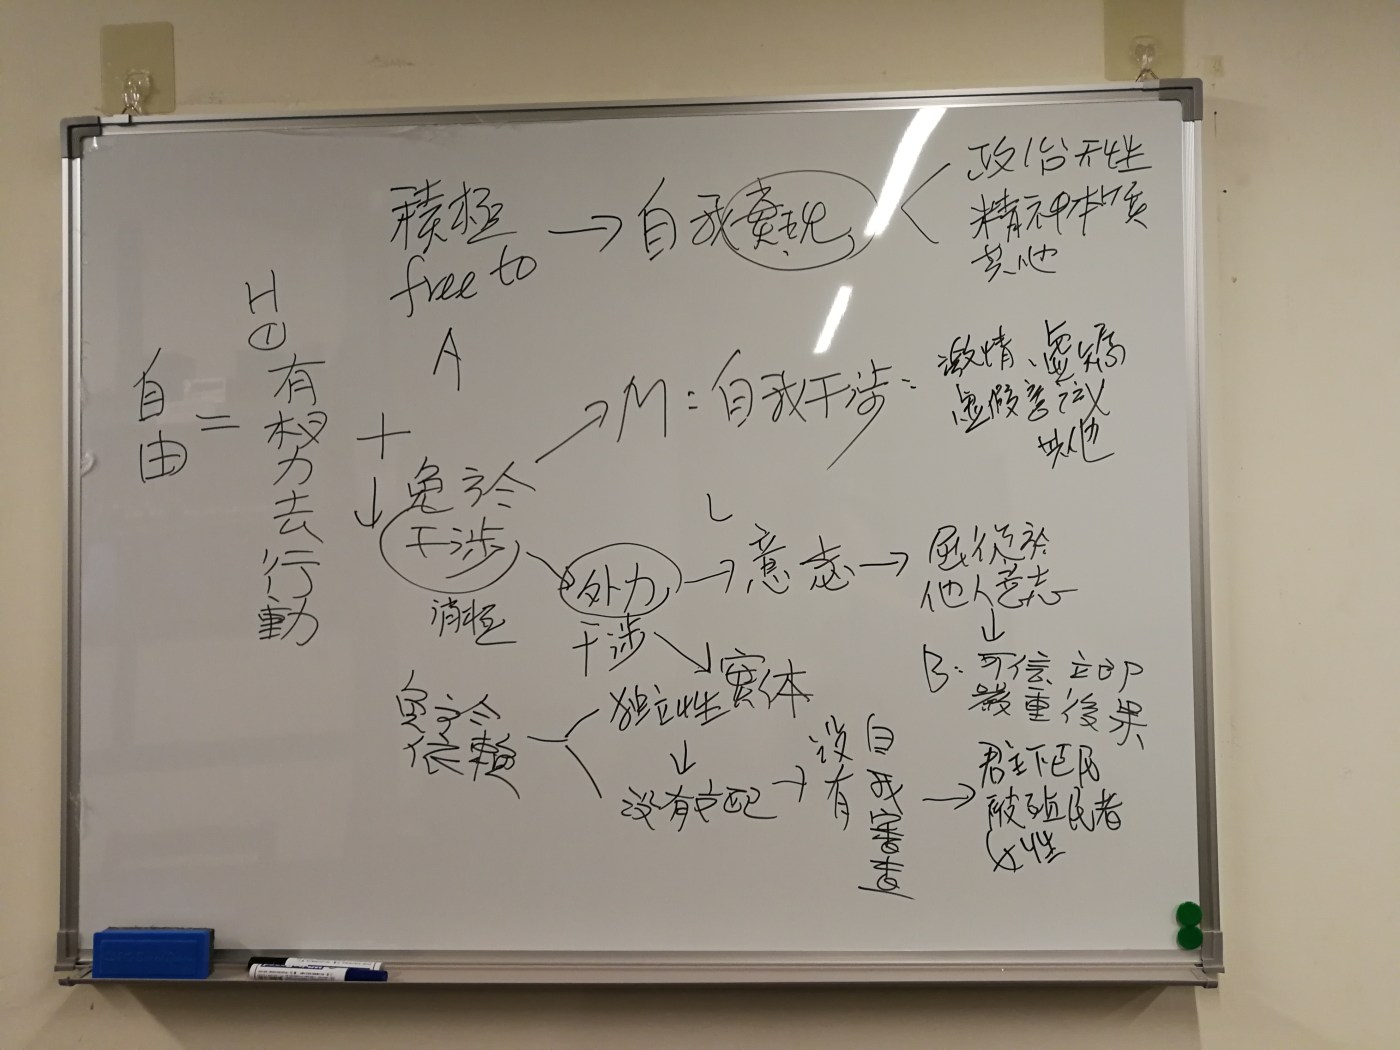 自由
=
H
①
有權力去行動
+
積極
free to
A
→ 自我實現
政治天性
精神本质
其他
↓
免於
干涉
消極
M: 自我干涉:
激情、
虛假意識
其他
外力
干涉
L
→ 意志 →
屈從於
他人意志
↓
B: 可信 立即
嚴重 後果
實体
免於
依賴
独立性
↓
没有支配 →
没有
自我審查
→
君主下臣民
被殖民者
女性